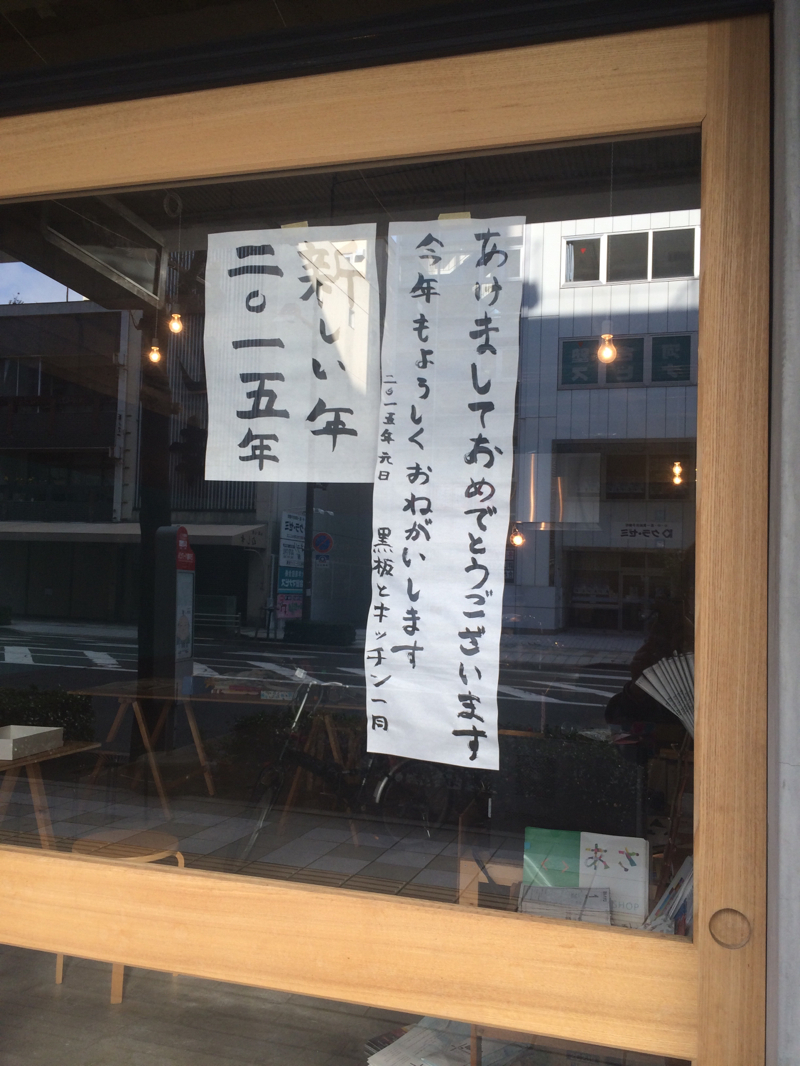 あけましておめでとうございます
今年もよろしくおねがいします
二〇一五年元日 黒板とキッチン一同
新しい年
二〇一五年